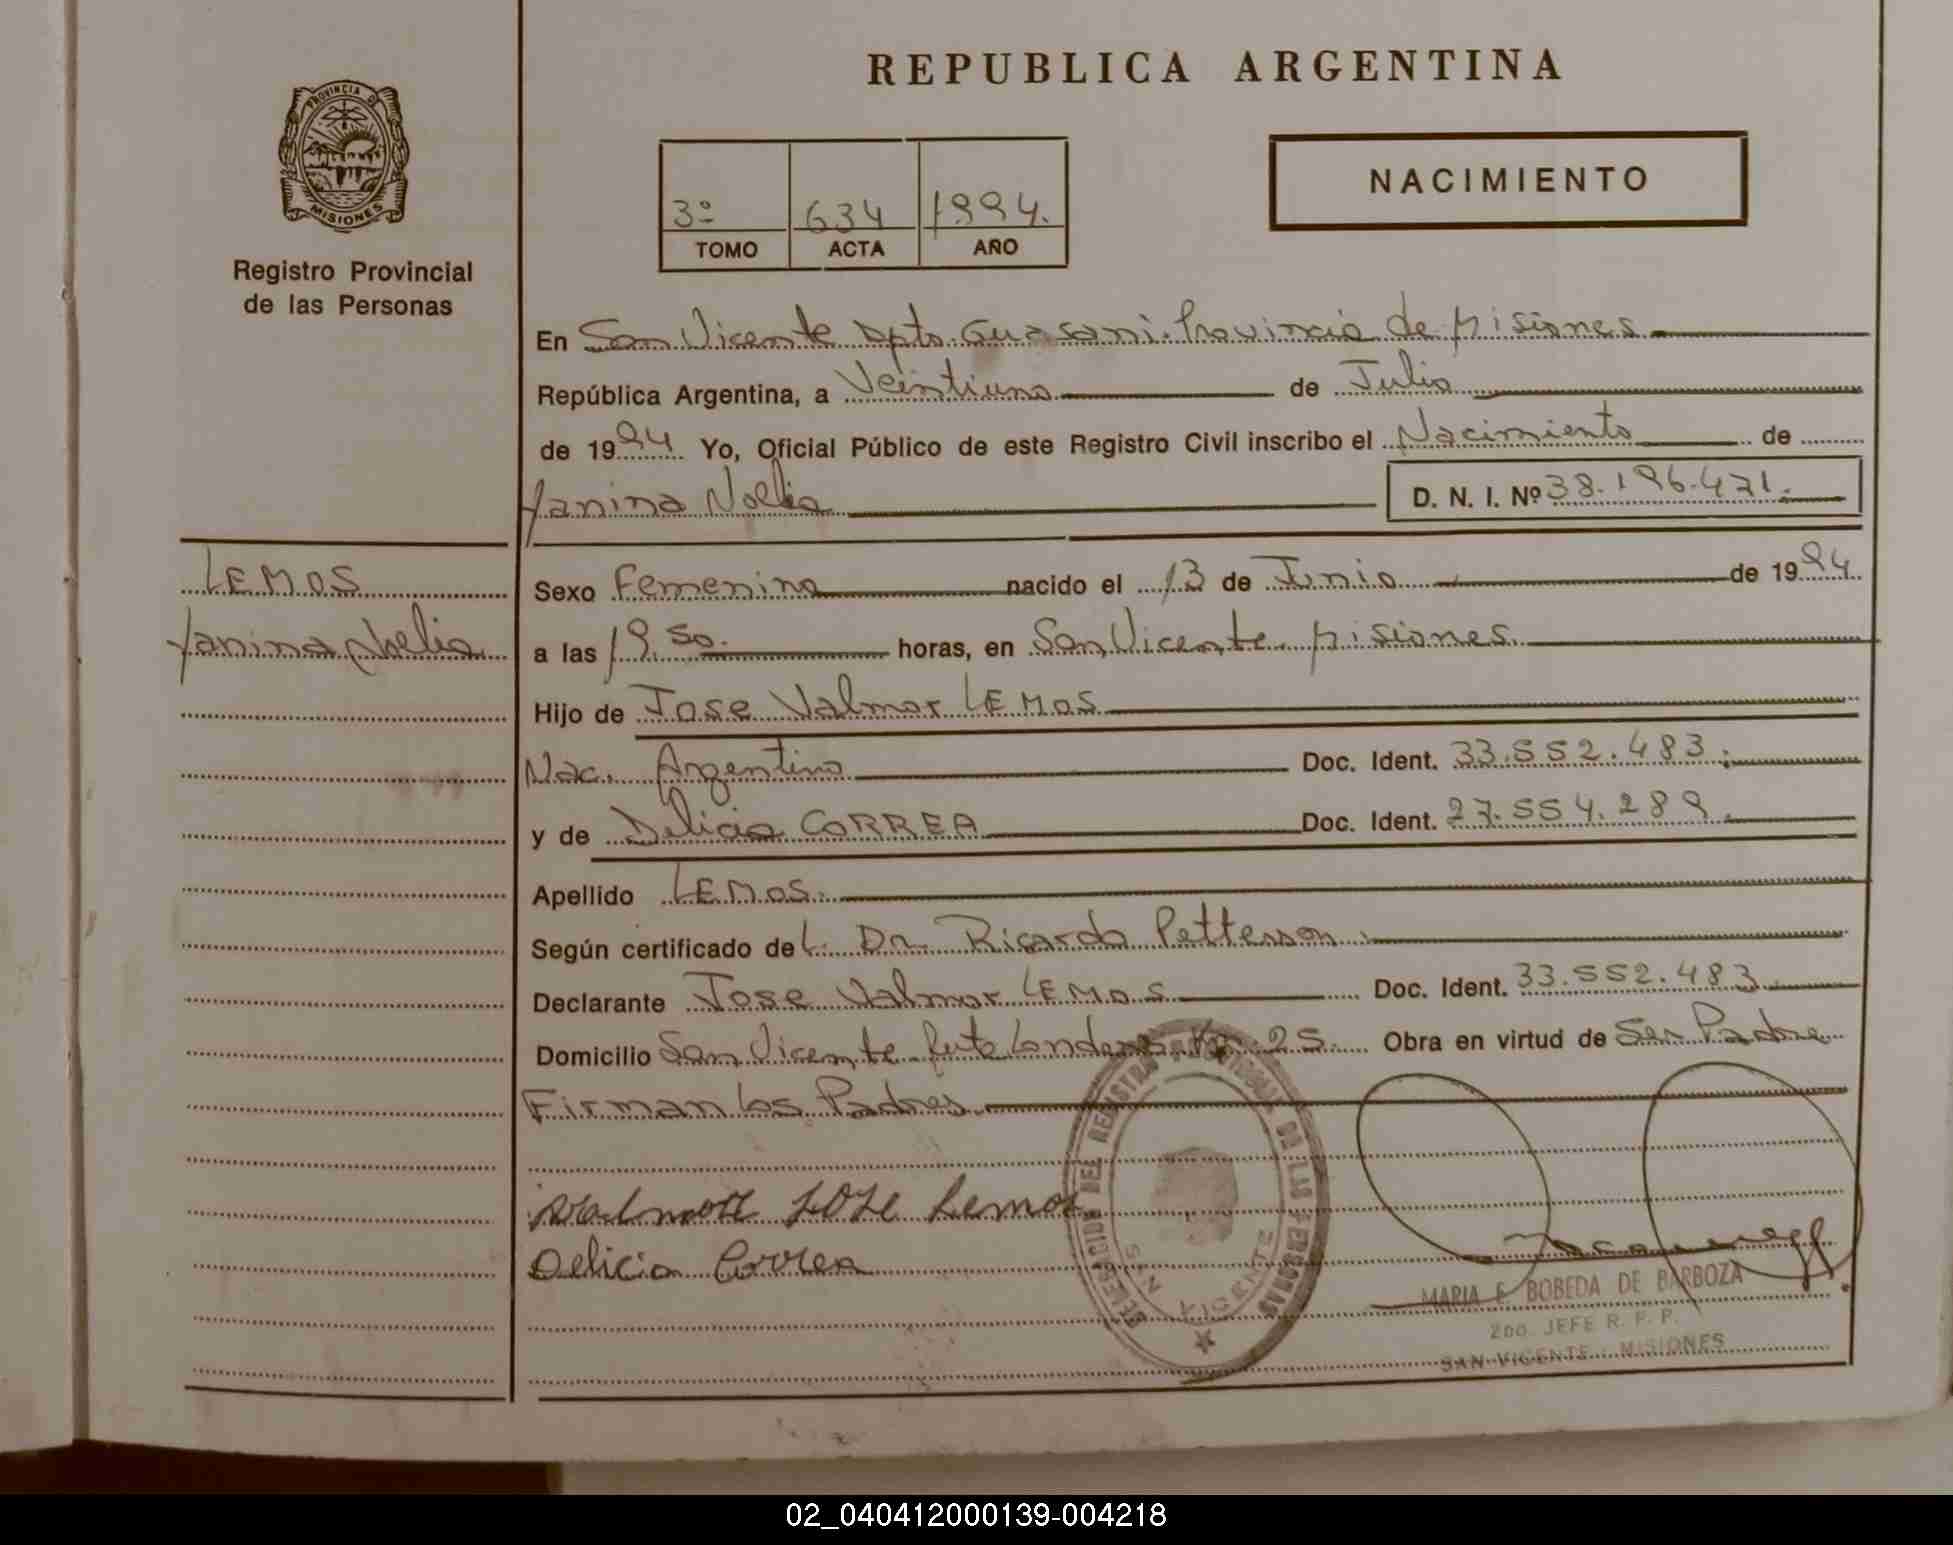 PROVINCIA DE
MISIONES
Registro Provincial
de las Personas
REPUBLICA ARGENTINA
3º 634 1994.
TOMO ACTA AÑO
NACIMIENTO
En San Vicente Dpto. Guarani. Provincia de Misiones
República Argentina, a Veintiuno de Julio
de 1994 Yo, Oficial Público de este Registro Civil inscribo el Nacimiento de
Yanina Noelia D. N. I. Nº 38.196.471.
LEMOS
Yanina Noelia
Sexo Femenino nacido el 13 de Junio de 1994
a las 19.50. horas, en San Vicente. Misiones
Hijo de Jose Valmor LEMOS
Nac. Argentino Doc. Ident. 33.552.483.
y de Delicia CORREA Doc. Ident. 27.554.289.
Apellido LEMOS.
Según certificado del. Dr. Ricardo Petterson.
Declarante Jose Valmor LEMOS Doc. Ident. 33.552.483.
Domicilio San Vicente Km 25. Obra en virtud de Ser Padre
Firman los Padres
Valmor JOSE Lemos
Delicia Correa
DELEGACION DEL REGISTRO DE LAS PERSONAS
SAN VICENTE
MARIA E. BOBEDA DE BARBOZA
2DO. JEFE R. P. P.
SAN VICENTE - MISIONES
02_040412000139-004218